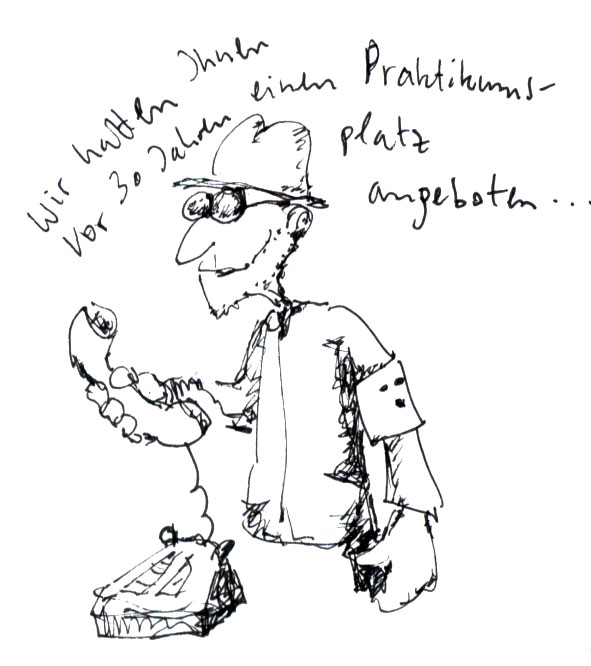 Wir hatten Ihnen
vor 30 Jahren einen Praktikums-
platz
angeboten...